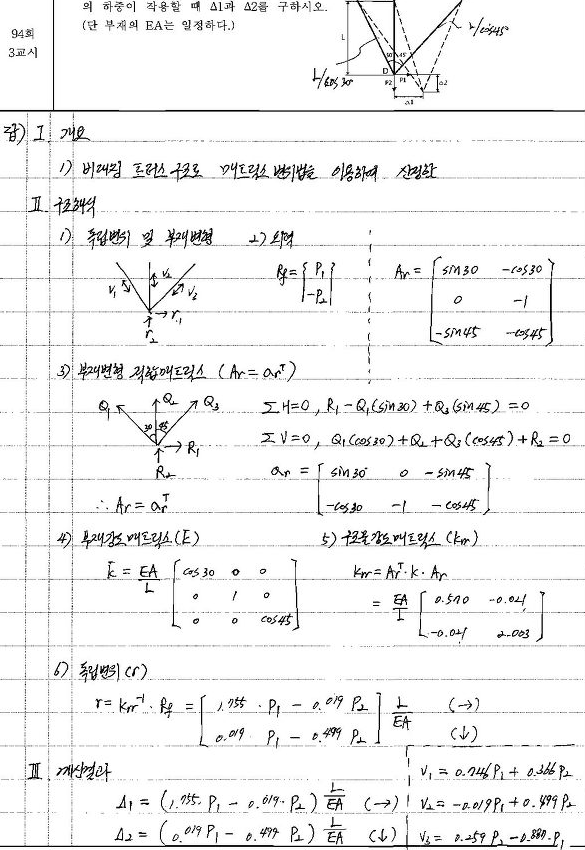 의 하중이 작용할 때 Δ1과 Δ2를 구하시오.
(단 부재의 EA는 일정하다.)
94회
3교시
L
30 45°
D P1
P2
Δ2
Δ1
L/cos30°
L/cos45°
답) I 개요
1) 비대칭 트러스 구조로 매트릭스 변위법을 이용하여 산정한
II 구조해석
1) 독립변위 및 부재변형 2) 외력
V1 V2 V2
r1
r2
Rf = { P1
-P2 }
Ar = [ sin30 -cos30
0 -1
-sin45 -cos45 ]
3) 부재변형 적합매트릭스 (Ar = ar^T)
Q1 Q2 Q3
30 45
R1
R2
ΣH=0, R1 - Q1(sin30) + Q3(sin45) = 0
ΣV=0, Q1(cos30) + Q2 + Q3(cos45) + R2 = 0
ar = [ sin30 0 -sin45
-cos30 -1 -cos45 ]
∴ Ar = ar^T
4) 부재강도매트릭스(k) 5) 구조물강도매트릭스 (Krr)
k = EA/L [ cos30 0 0
0 1 0
0 0 cos45 ]
Krr = Ar^T · k · Ar
= EA/L [ 0.570 -0.021
-0.021 2.003 ]
6) 독립변위(r)
r = Krr^-1 · Rf = [ 1.755 · P1 - 0.019 P2
0.019 P1 - 0.499 P2 ] L/EA (→)
(↓)
III 계산결과
Δ1 = (1.755·P1 - 0.019·P2) L/EA (→)
Δ2 = (0.019P1 - 0.499 P2) L/EA (↓)
V1 = 0.746P1 + 0.366P2
V2 = -0.019P1 + 0.499P2
V3 = 0.259P2 - 0.880·P1